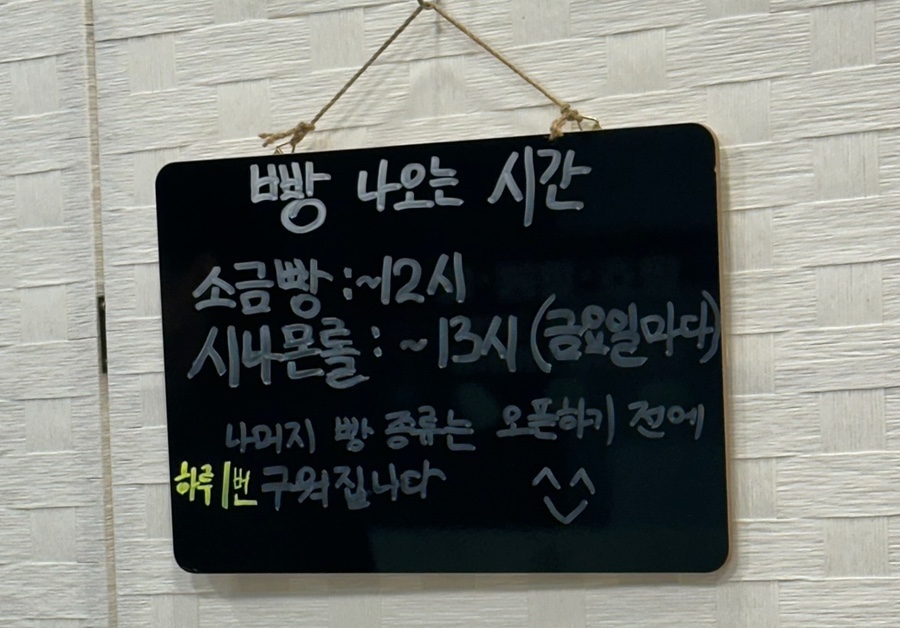 빵 나오는 시간
소금빵 : ~12시
시나몬롤 : ~13시 (금요일마다)
나머지 빵 종류는 오픈하기 전에
하루 1번 구워집니다 ^^